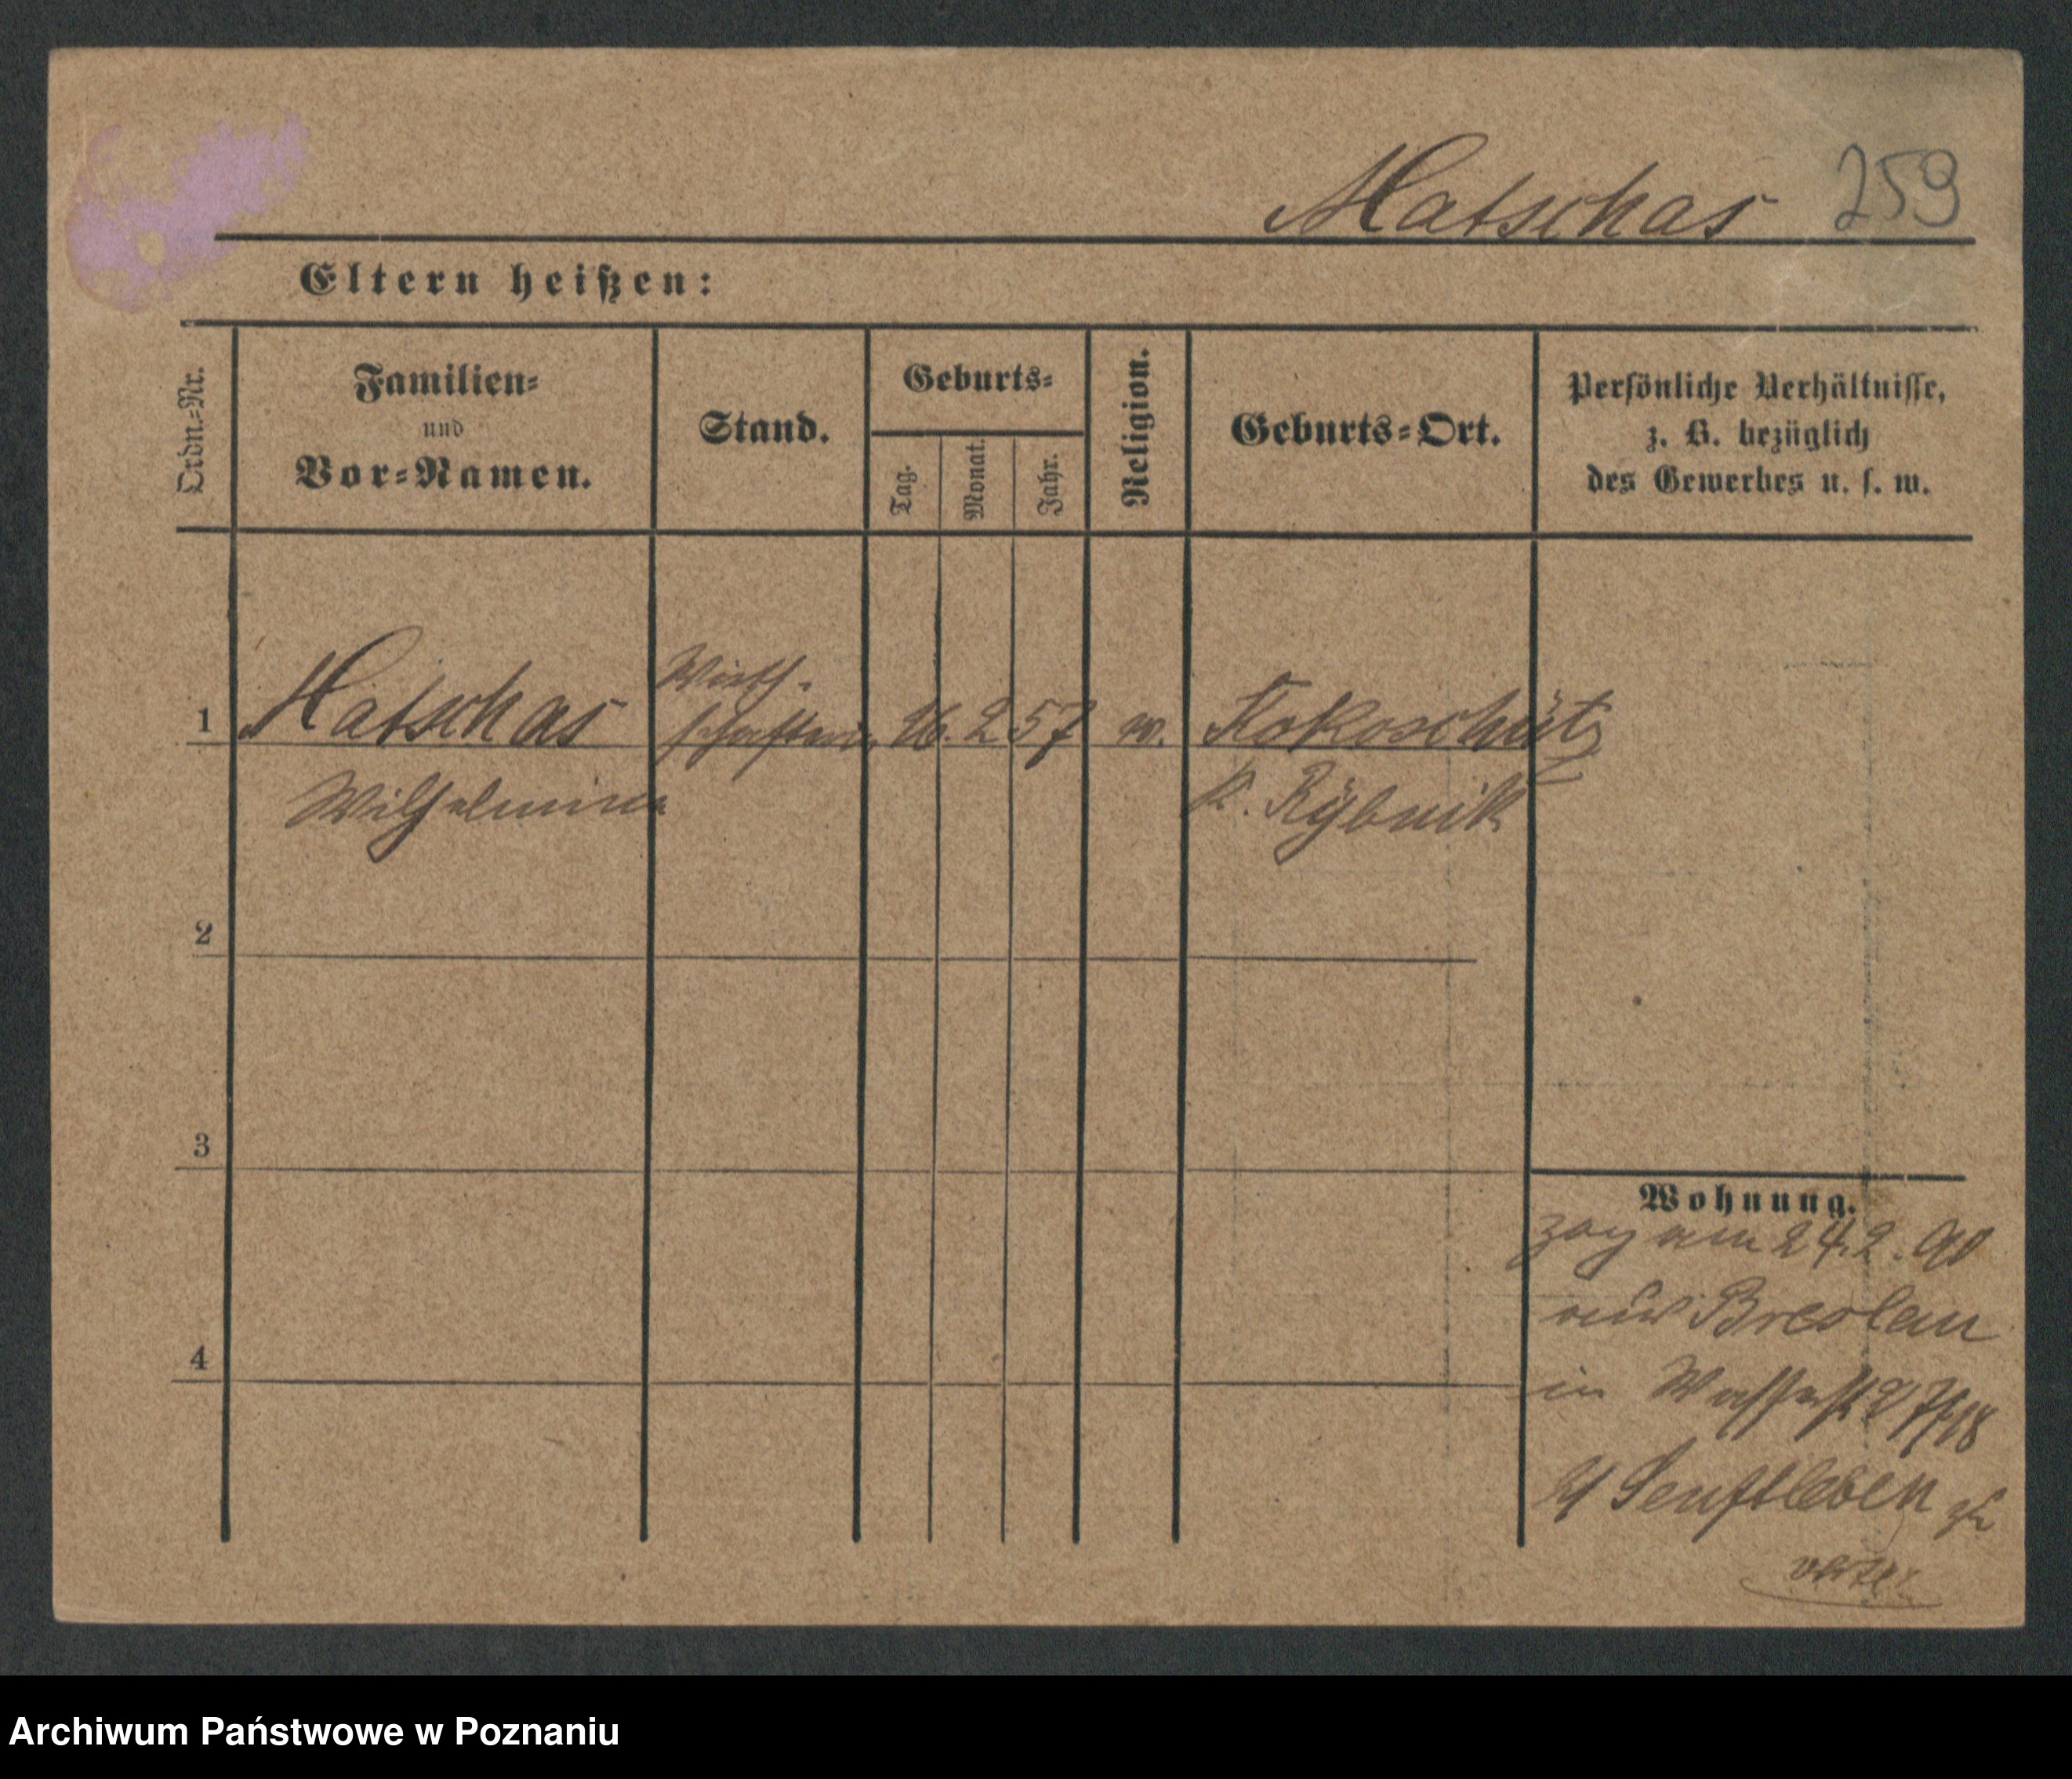 Matschas 259
Eltern heißen:
Ordn.=Nr.
Familien=
und
Vor=Namen.
Stand.
Geburts=
Tag.
Monat.
Jahr.
Religion.
Geburts=Ort.
Persönliche Verhältnisse,
z. B. bezüglich
des Gewerbes u. s. w.
1 Matschas Wirth- schafterin 16. 2 57 Kokoschütz
Wilhelmine K. Rybnik
2
3
4
Wohnung.
zog am 24.2.90
aus Breslau
in
Senftleben
Archiwum Państwowe w Poznaniu